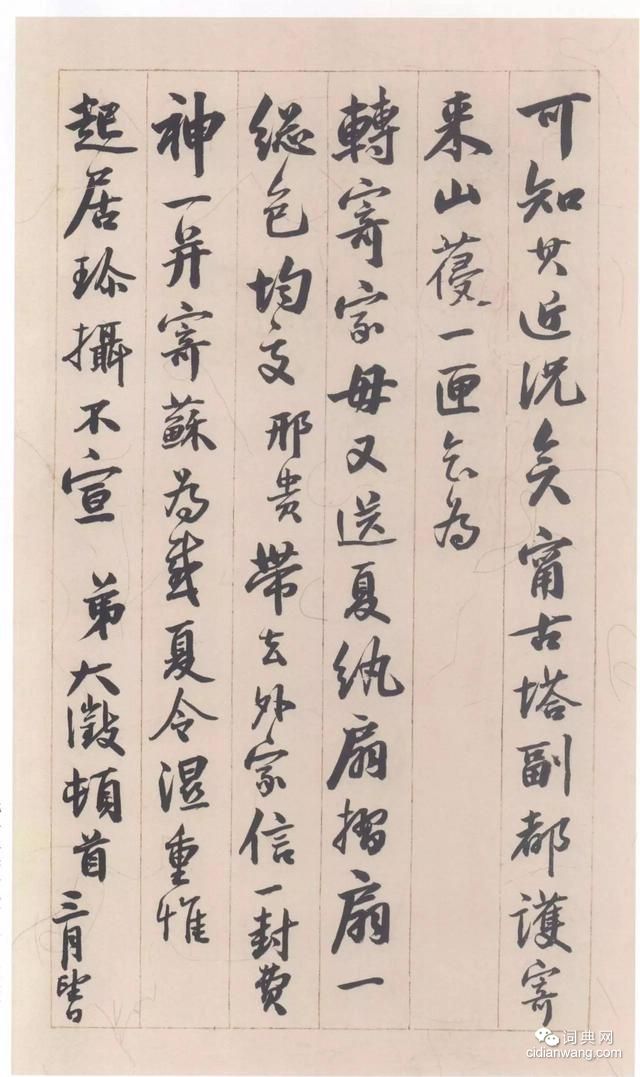 可知其近况矣甯古塔副都護寄
来山葠一匣乞为
轉寄家母又送夏纨扇摺扇一
總包均交邢贵帶去外家信一封费
神一并寄蘇為感夏令濕重惟
起居珍攝不宣 弟大澂頓首 三月
词典网
cidianwang.com